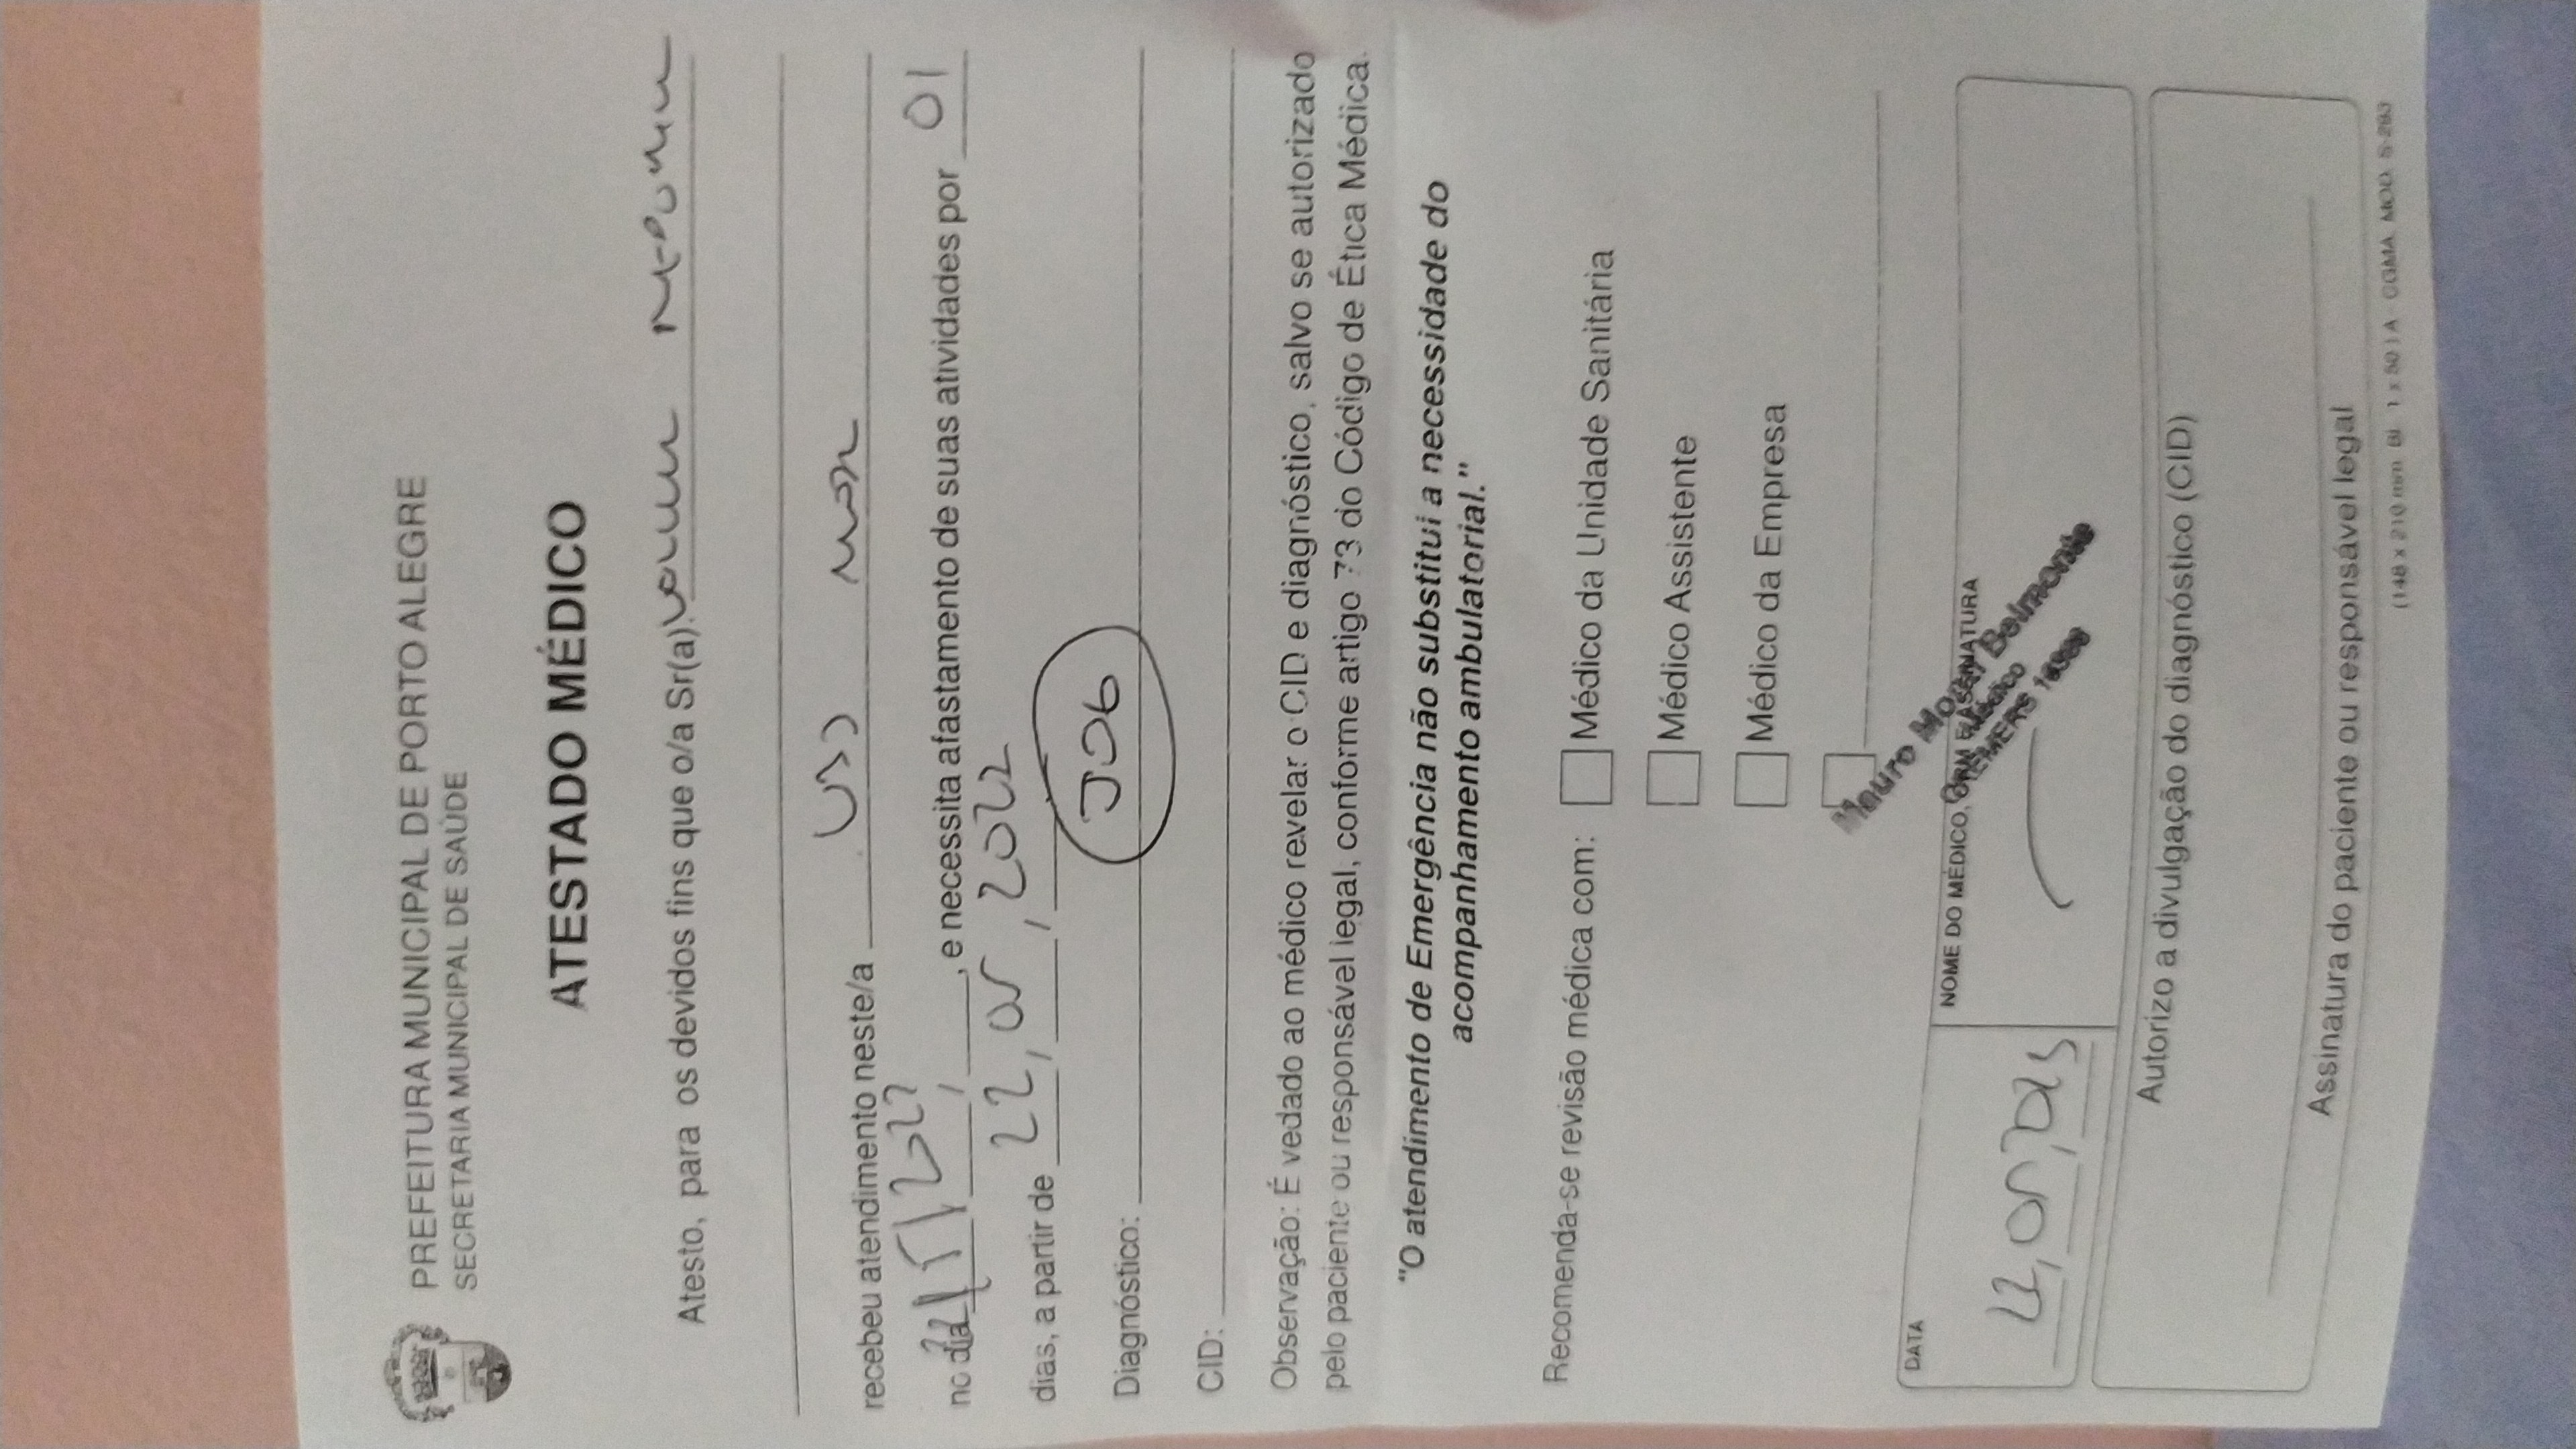 PREFEITURA MUNICIPAL DE PORTO ALEGRE
SECRETARIA MUNICIPAL DE SAÚDE
ATESTADO MÉDICO
Atesto, para os devidos fins que o/a Sr(a).
recebeu atendimento neste/a
no dia 22/5/2022, e necessita afastamento de suas atividades por 01
dias, a partir de 22/05/2022
Diagnóstico: J06
CID:
Observação: É vedado ao médico revelar o CID e diagnóstico, salvo se autorizado
pelo paciente ou responsável legal, conforme artigo 73 do Código de Ética Médica.
"O atendimento de Emergência não substitui a necessidade do
acompanhamento ambulatorial."
Recomenda-se revisão médica com:
Médico da Unidade Sanitária
Médico Assistente
Médico da Empresa
DATA
22/05/2023
NOME DO MÉDICO, CRM E ASSINATURA
Mauro Belmonte
Médico
CREMERS
Autorizo a divulgação do diagnóstico (CID)
Assinatura do paciente ou responsável legal
(148 x 210 mm Bl. 1 x 50) A - CGMA. MOD. S-293